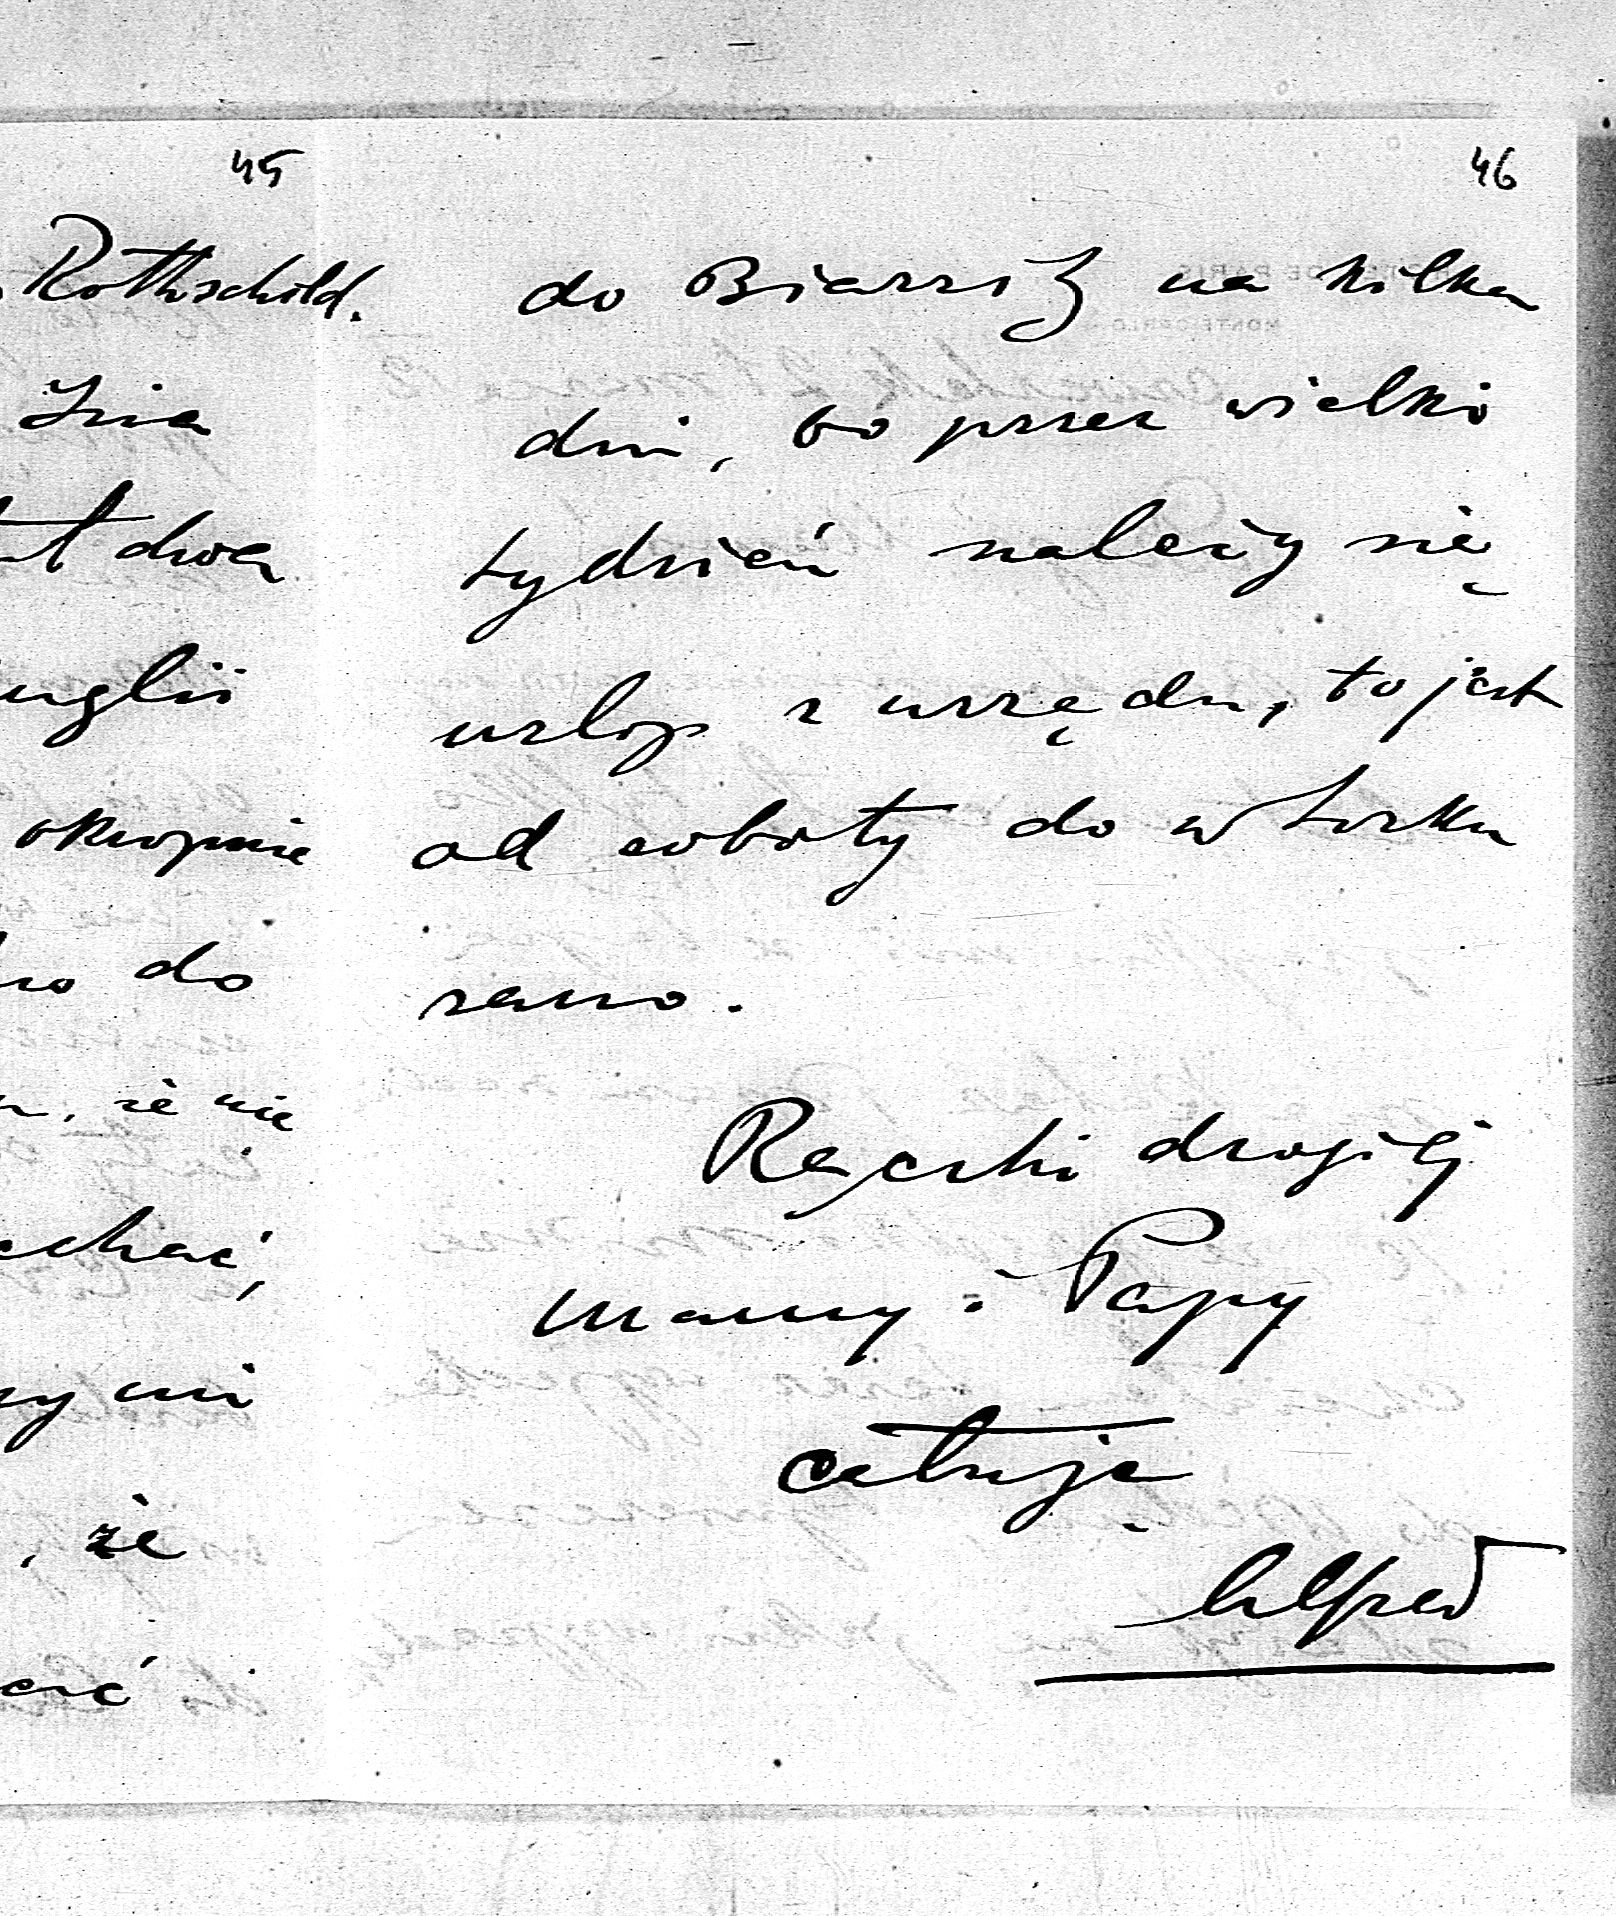 45
Rothschild.
Inia
dwa
okropnie
do
, że nie
, że
46
do Biarritz na kilka
dni, bo przez wielki
tydzień należy się
urlop z urzędu, to jest
od soboty do wtorku
rano.
Rączki drogiéj
Mamy i Papy
całuję
Alfred